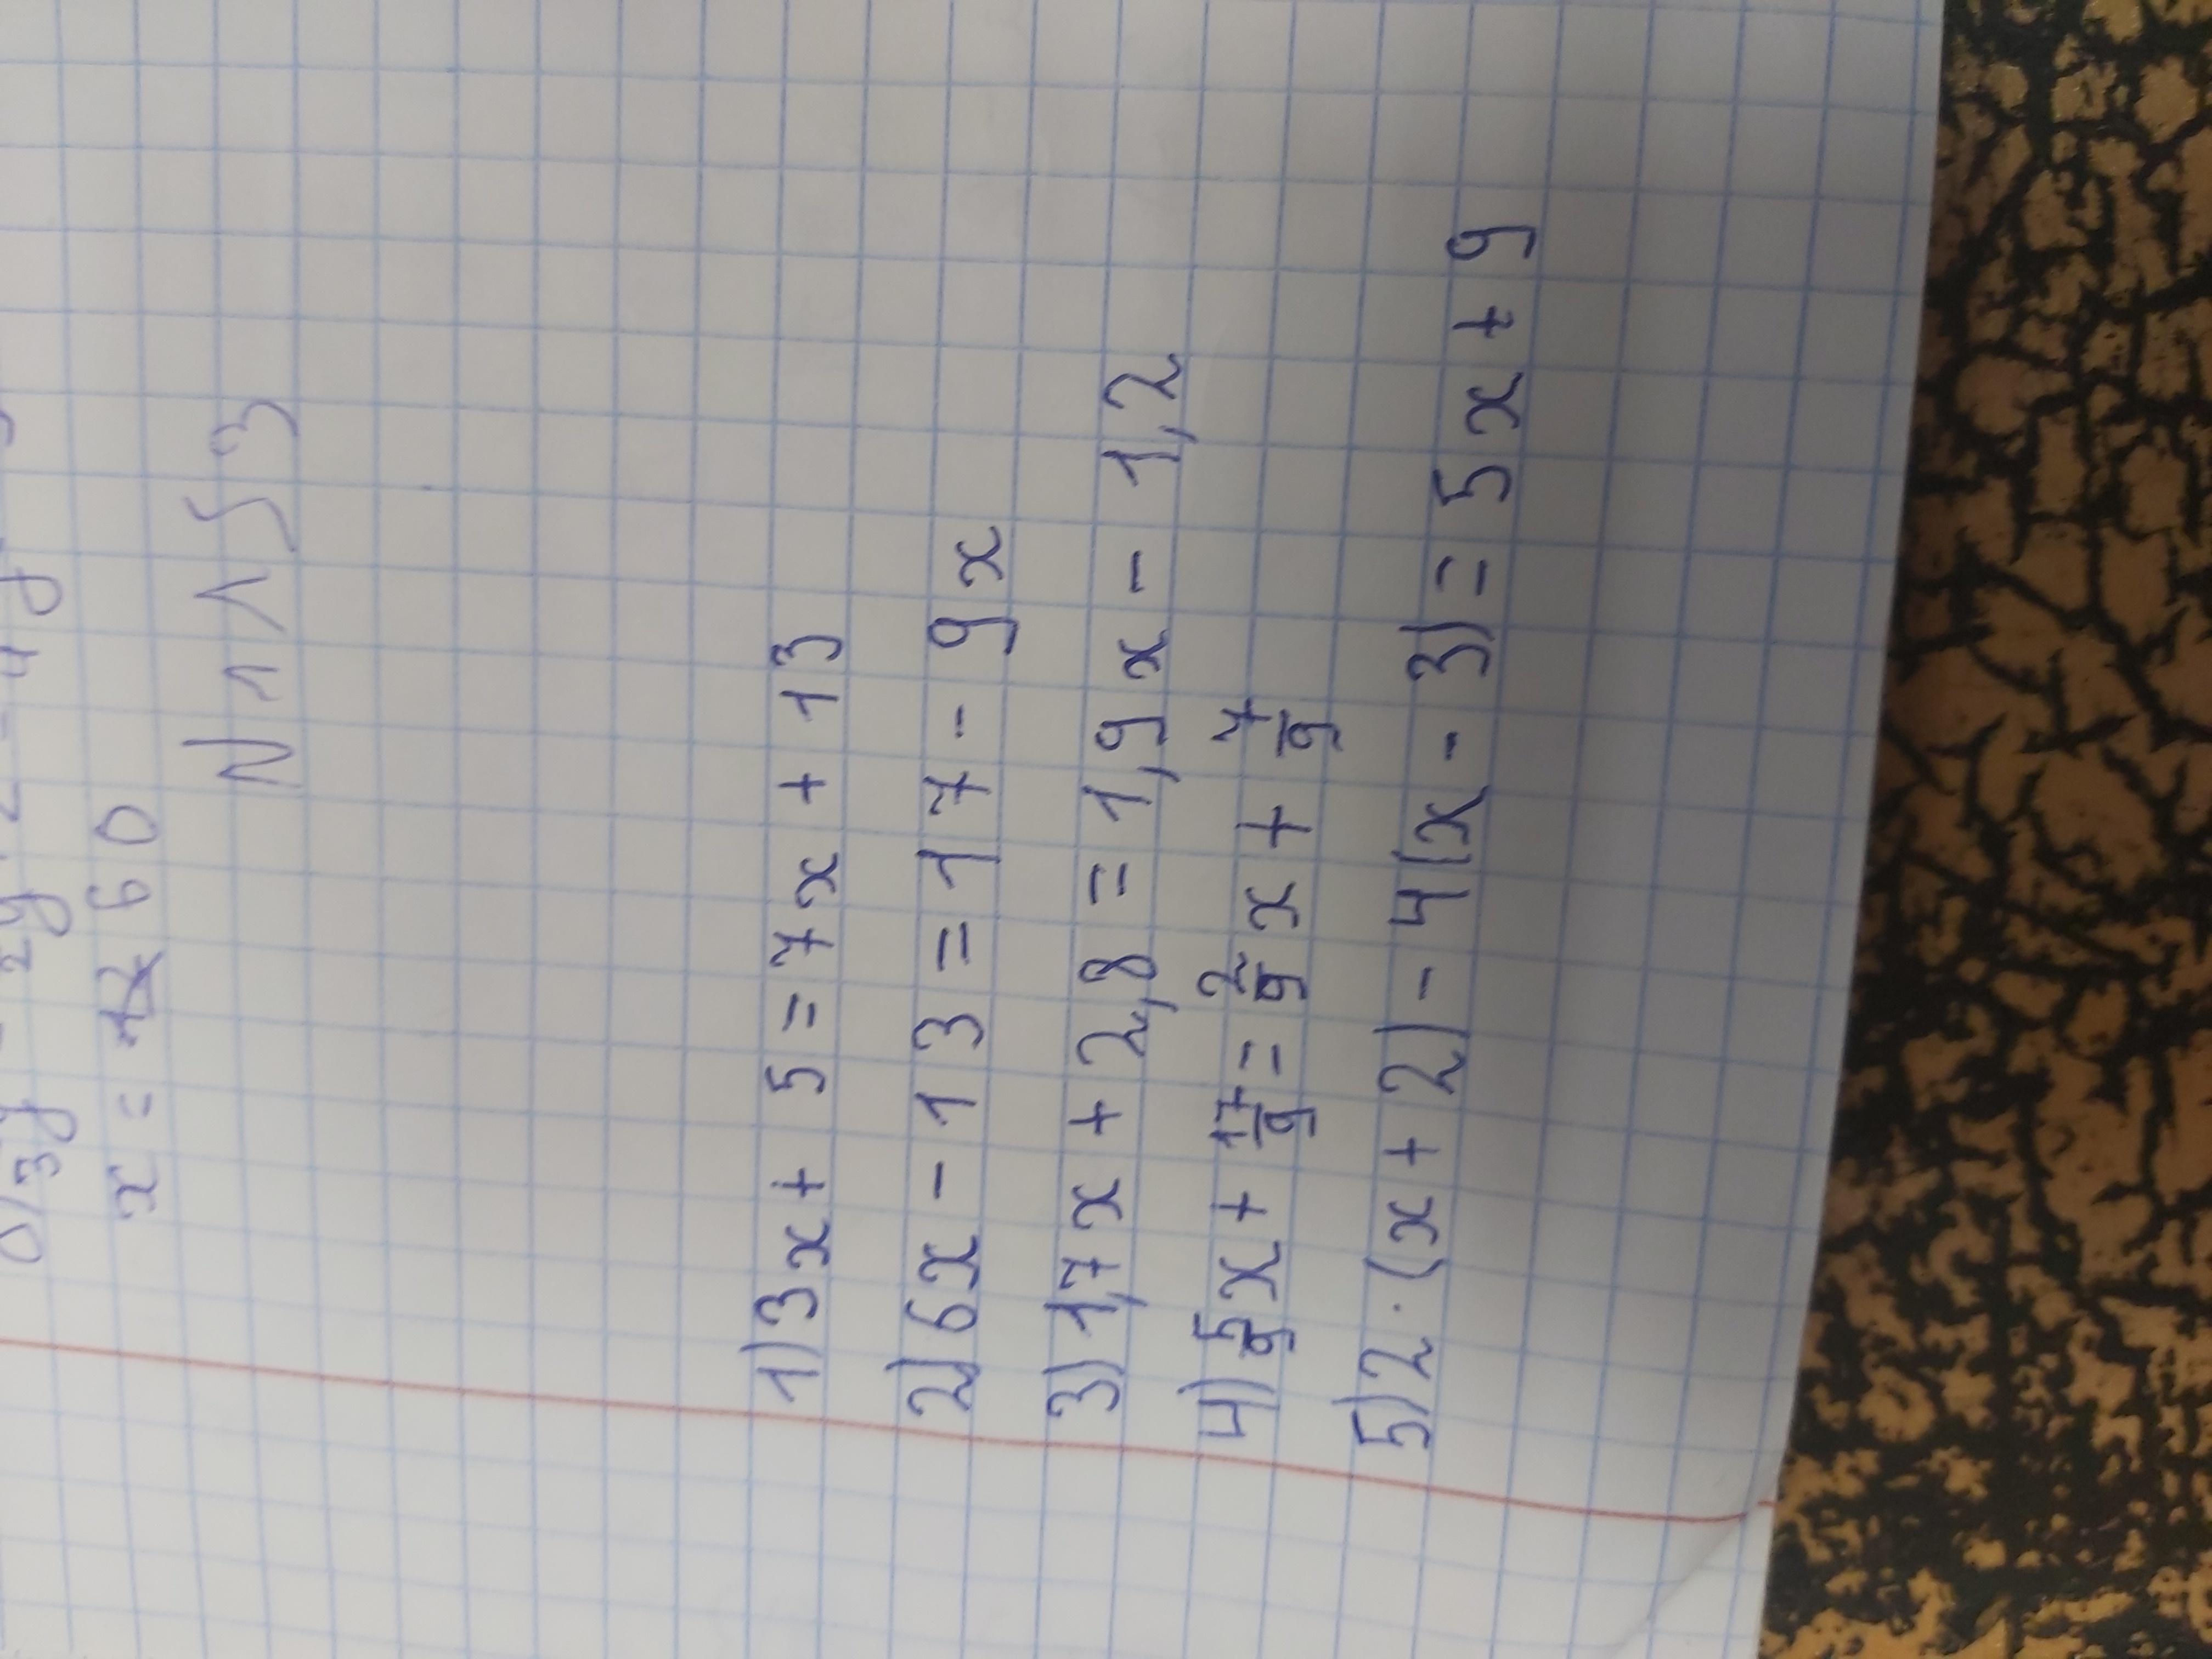 x = 60
N 1153
1) 3x + 5 = 7x + 13
2) 6x - 13 = 17 - 9x
3) 1,7x + 2,8 = 1,9x - 1,2
4) 5/9 x + 17/9 = 2/9 x + 7/9
5) 2 · (x + 2) - 4(x - 3) = 5x + 9